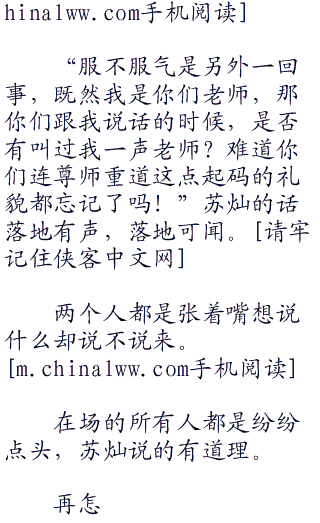 hina1ww.com手机阅读]
“服不服气是另外一回
事，既然我是你们老师，那
你们跟我说话的时候，是否
有叫过我一声老师？难道你
们连尊师重道这点起码的礼
貌都忘记了吗！”苏灿的话
落地有声，落地可闻。[请牢
记住侠客中文网]
两个人都是张着嘴想说
什么却说不说来。
[m.china1ww.com手机阅读]
在场的所有人都是纷纷
点头，苏灿说的有道理。
再怎